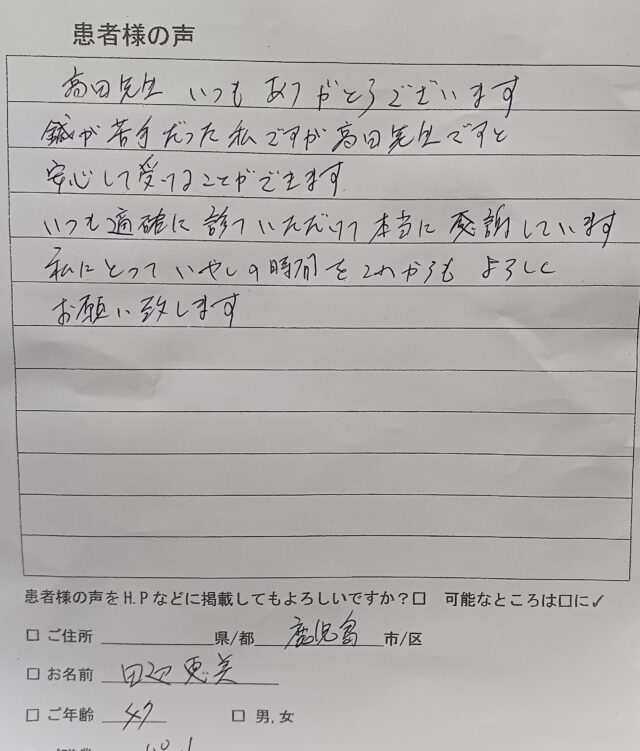 患者様の声
高田先生 いつもありがとうございます
鍼が苦手だった私ですが高田先生ですと
安心して受けることができます
いつも適確に診ていただけて本当に感謝しています
私にとっていやしの時間をこれからもよろしく
お願い致します
患者様の声をH.Pなどに掲載してもよろしいですか?□ 可能なところは□に✓
□ ご住所 県/都 鹿児島 市/区
□ お名前 田辺恵美
□ ご年齢 47 □ 男,女